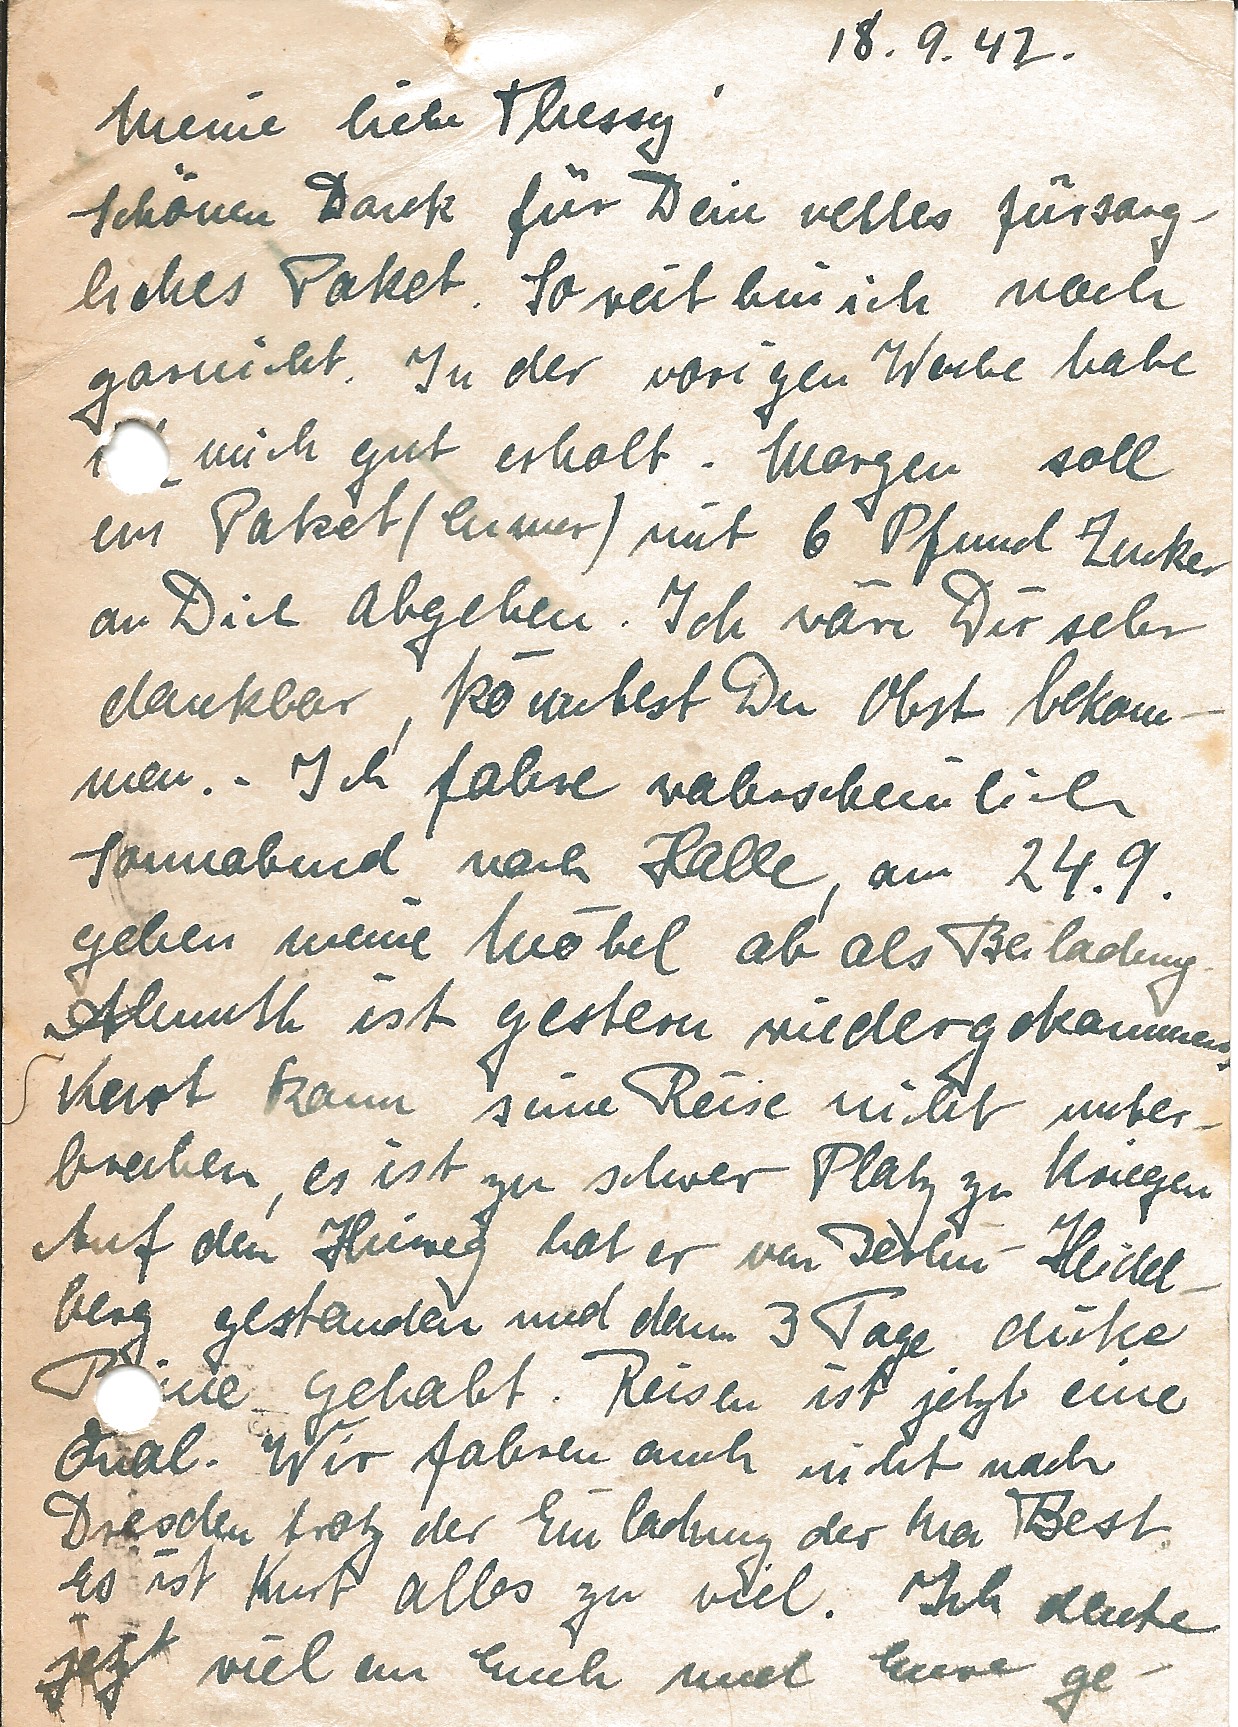 18. 9. 42.
Meine liebe Thessy!
Schönen Dank für Dein nettes fürsorg-
liches Paket. So weit bin ich noch
garnicht. In der vorigen Woche habe
mich gut erholt. Morgen soll
ein Paket (Eimer) mit 6 Pfund Zucker
an Dich abgehen. Ich wäre Dir sehr
dankbar, könntest Du Obst bekom-
men. - Ich fahre wahrscheinlich
Sonnabend nach Halle, am 24.9.
gehen meine Möbel ab als Beiladung.
Almuth ist gestern wiedergekommen,
Kurt kann seine Reise nicht unter-
brechen, es ist zu schwer Platz zu kriegen
Auf dem Hinweg hat er von Berlin - Heidel-
berg gestanden und dann 3 Tage dicke
Beine gehabt. Reisen ist jetzt eine
Qual. Wir fahren auch nicht nach
Dresden trotz der Einladung der Ma Best.
Es ist Kurt alles zu viel. Ich denke
jetzt viel an Euch und Eure ge-